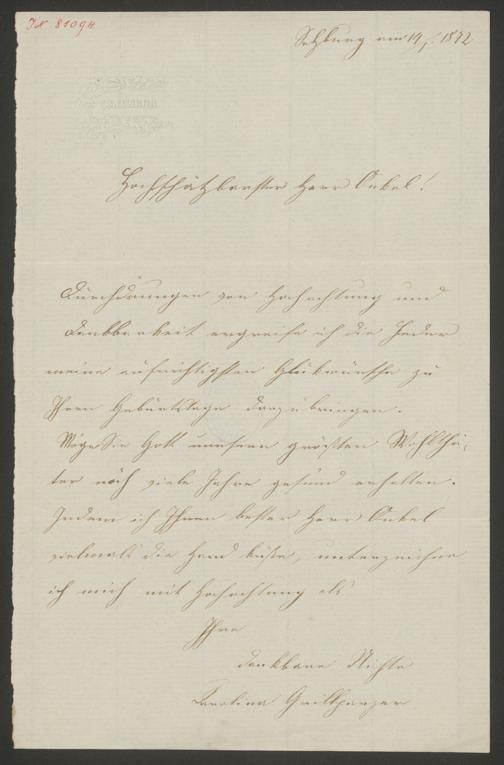 IN 81094
Salzburg am 14/1. 1872
Hochschätzbarster Herr Onkel!
Durchdrungen von Hochachtung und
Dankbarkeit ergreife ich die Feder
meine aufrichtigsten Glükwünsche zu
Ihren Geburtstage darzubringen.
Möge Sie Gott unsern größten Wohlthä-
ter noch viele Jahre gesund erhalten.
Indem ich Ihnen bester Herr Onkel
vielmals die Hand küße, unterzeichne
ich mich mit Hochachtung als
Ihre
dankbare Nichte
Carolina Grillparzer